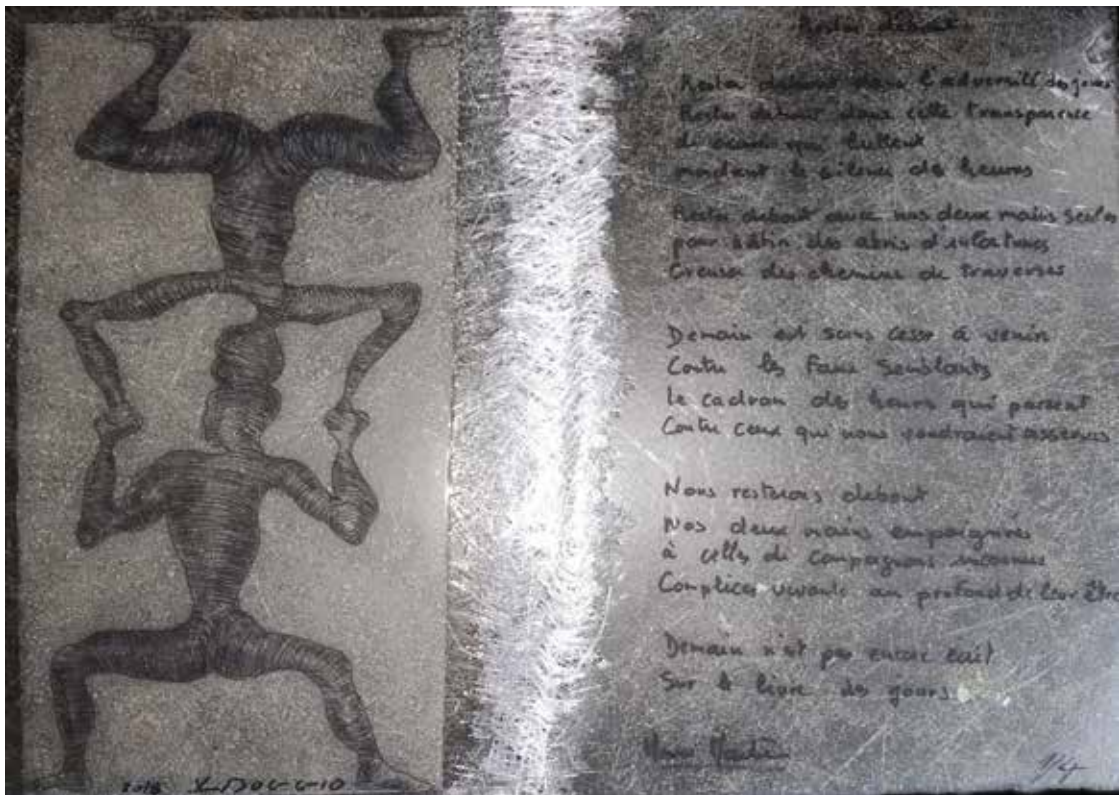 Rester debout
Rester debout dans l'adversité des jours
Rester debout dans cette transparence
qui luttent
mordant le silence des heures
Rester debout avec nos deux mains seules
pour bâtir des abris d'infortunes
Creuser des chemins de traverses
Demain est sans cesse à venir
Contre les faux semblants
le cadran des heures qui passent
Contre ceux qui nous voudraient asservis
Nous resterons debout
Nos deux mains empoignées
à celles de compagnons inconnus
Complices vivants au profond de leur être
Demain n'est pas encore écrit
Sur le livre des jours
2018
1/4